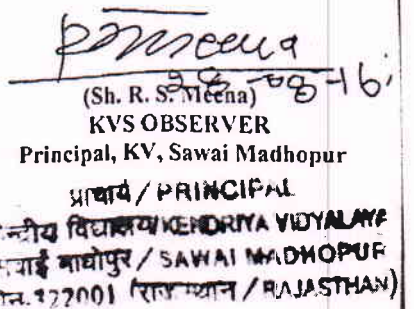 RSMeena
28-08-16
(Sh. R. S. Meena)
KVS OBSERVER
Principal, KV, Sawai Madhopur
प्राचार्य / PRINCIPAL
न्द्रीय विद्यालय/KENDRIYA VIDYALAYA
सवाई माधोपुर / SAWAI MADHOPUR
322001 (राजस्थान / RAJASTHAN)